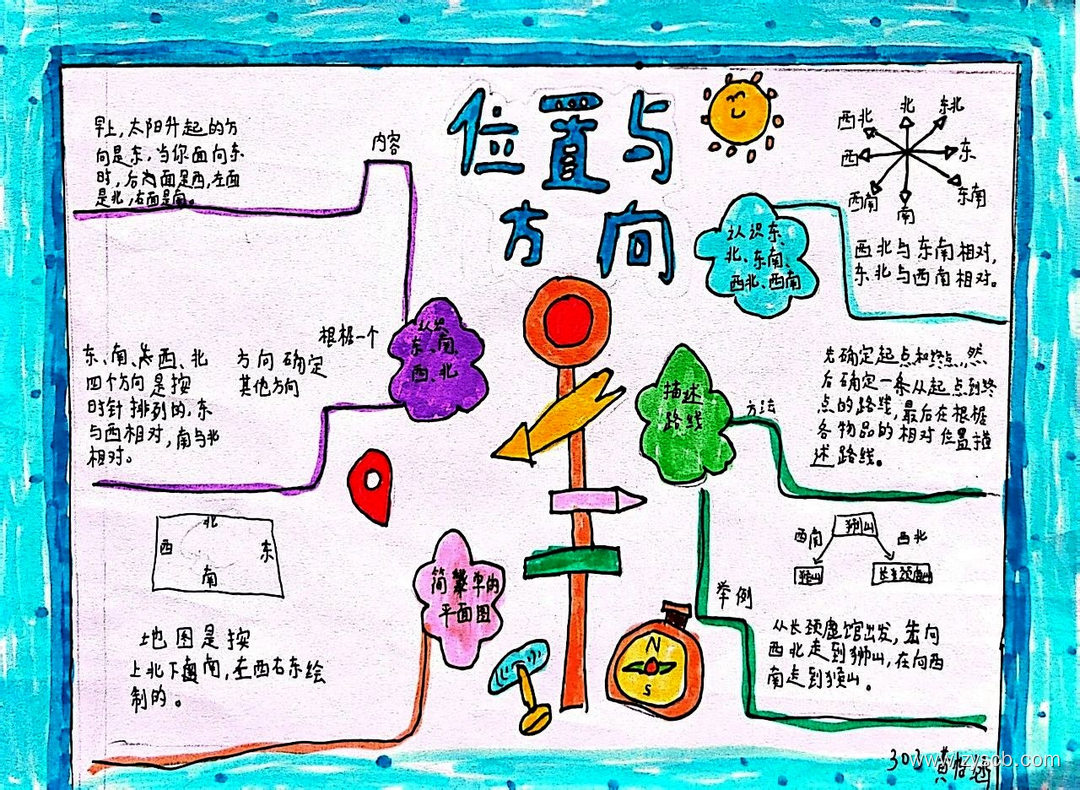 位置与
方向
内容
早上,太阳升起的方
向是东,当你面向东
时,后面是西,左面
是北,右面是南。
认识
东、南、
西、北
根据一个
方向确定
其他方向
东、南、西、北
四个方向是按
时针排列的,东
与西相对,南与北
相对。
北
西 东
南
地图是按
上北下南,左西右东绘
制的。
简单的
平面图
认识东
北、东南、
西北、西南
北
西北 东北
西 东
西南 东南
南
西北与东南相对,
东北与西南相对。
描述
路线
方法
先确定起点和终点,然
后确定一条从起点到终
点的路线,最后在根据
各物品的相对位置描
述路线。
举例
狮山
西南 西北
长颈鹿
从长颈鹿馆出发,向
西北走到狮山,在向西
南走到
N
S
302
www.zyscb.com